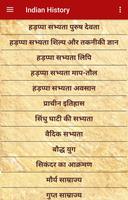 Indian History
हड़प्पा सभ्यता पुरुष देवता
हड़प्पा सभ्यता शिल्प और तकनीकी ज्ञान
हड़प्पा सभ्यता लिपि
हड़प्पा सभ्यता माप-तौल
हड़प्पा सभ्यता अवसान
प्राचीन इतिहास
सिंधु घाटी की सभ्यता
वैदिक सभ्यता
बौद्ध युग
सिकंदर का आक्रमण
मौर्य साम्राज्य
गुप्त साम्राज्य